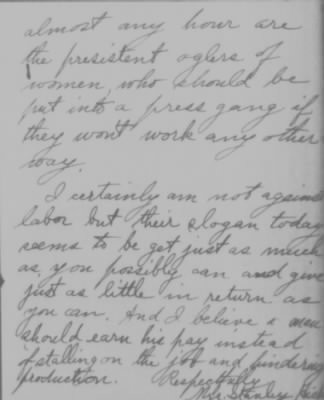 almost any hour are
the presistent oglers of
women, who should be
put into a press gang if
they wont work any other
way.
I certainly am not against
labor but their slogan today
seems to be get just as much
as you possibly can and give
just as little in return as
you can. And I believe a man
should earn his pay instead
of stalling on the job and hindering
production. Respectfully
Mrs. Stanley